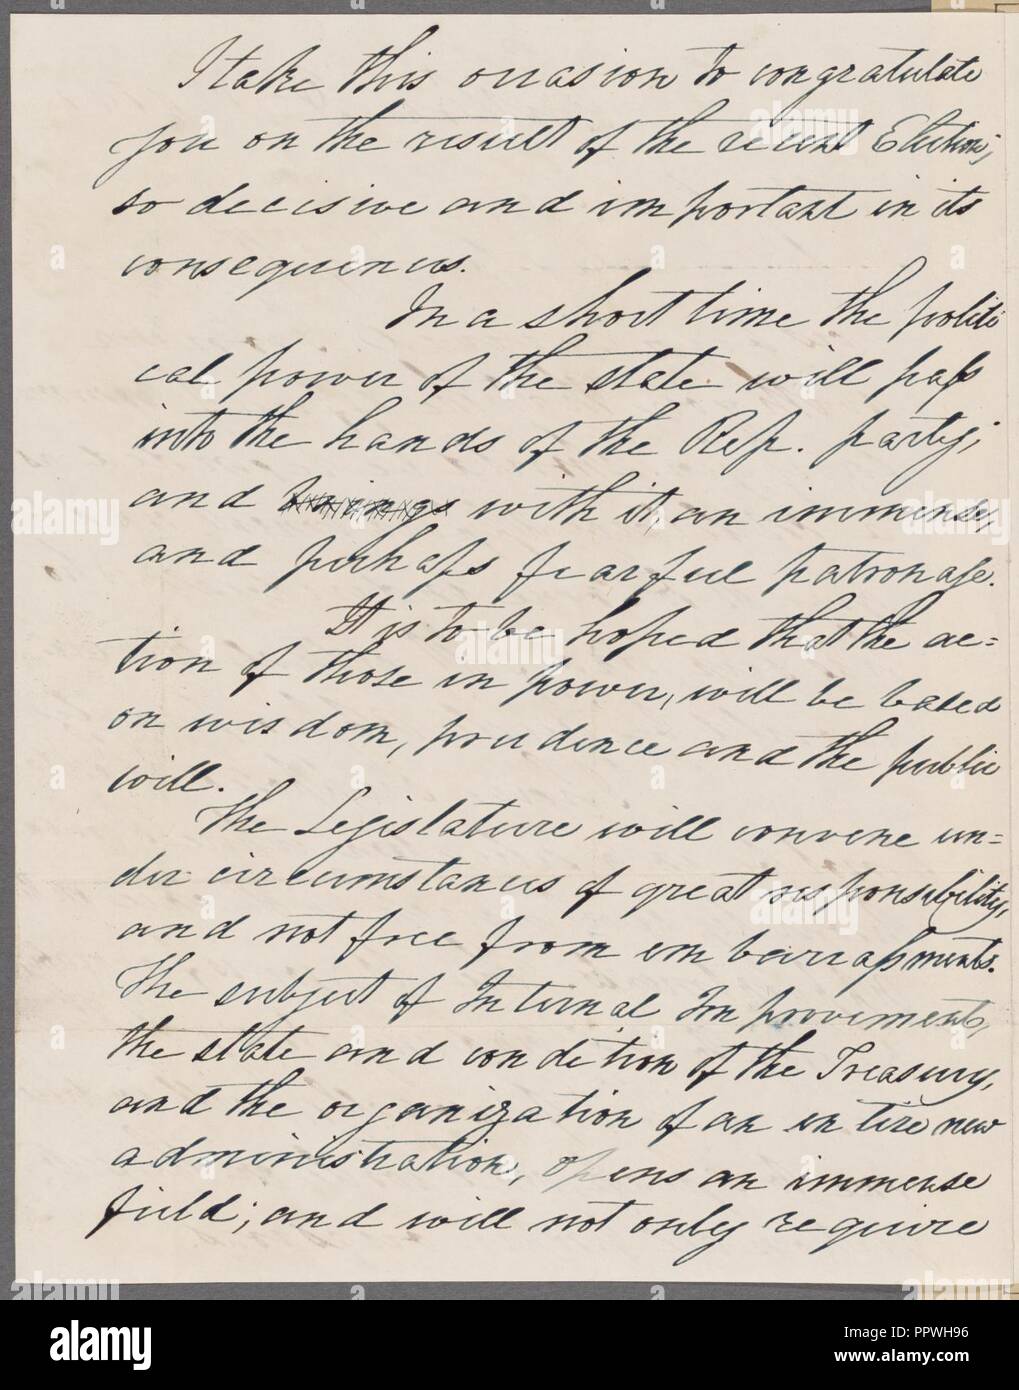 I take this occasion to congratulate
you on the result of the recent Elections,
so decisive and important in its
consequences.
In a short time the politi
cal power of the state will pass
into the hands of the Rep. party;
and brings with it, an immense,
and perhaps fearful patronage.
It is to be hoped that the ac=
tion of those in power, will be based
on wisdom, prudence and the public
will.
The Legislature will convene un=
der circumstances of great responsibility,
and not free from embarrassments.
The subject of Internal Improvements,
the state and condition of the Treasury,
and the organization of an entire new
administration, opens an immense
field; and will not only require
alamy
Image ID: PPWH96
www.alamy.com